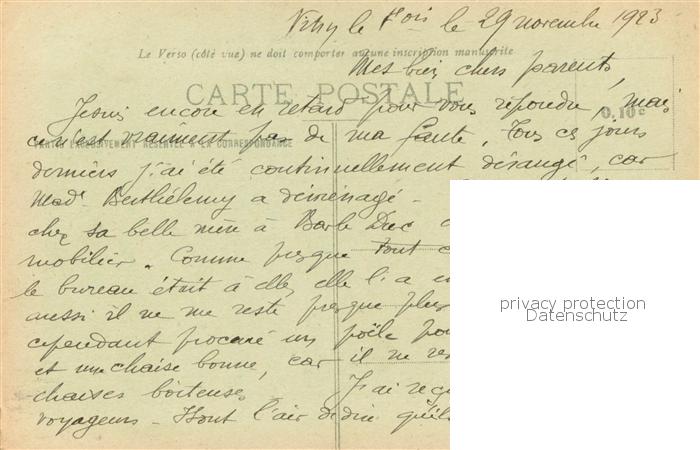 Vitry le f ois le 29 novembre 1923
Le Verso (côté vue) ne doit comporter aucune inscription manuscrite
Mes bien chers parents,
CARTE POSTALE
Je suis encore en retard pour vous répondre, mais
0,10c
ce n'est vraiment pas de ma faute, Tous ces jours
CARTE EXCLUSIVEMENT RÉSERVÉE A LA CORRESPONDANCE
derniers j'ai été continuellement dérangé, car
Mad. Berthélemy a déménagé -
chez sa belle mère à Bar le Duc
mobilier. Comme presque tout
le bureau était à elle, elle l'a
aussi il ne me reste presque plus
cependant procuré un poële
et une chaise bonne, car il ne
chaises boiteuses J'ai
voyageurs -
privacy protection
Datenschutz